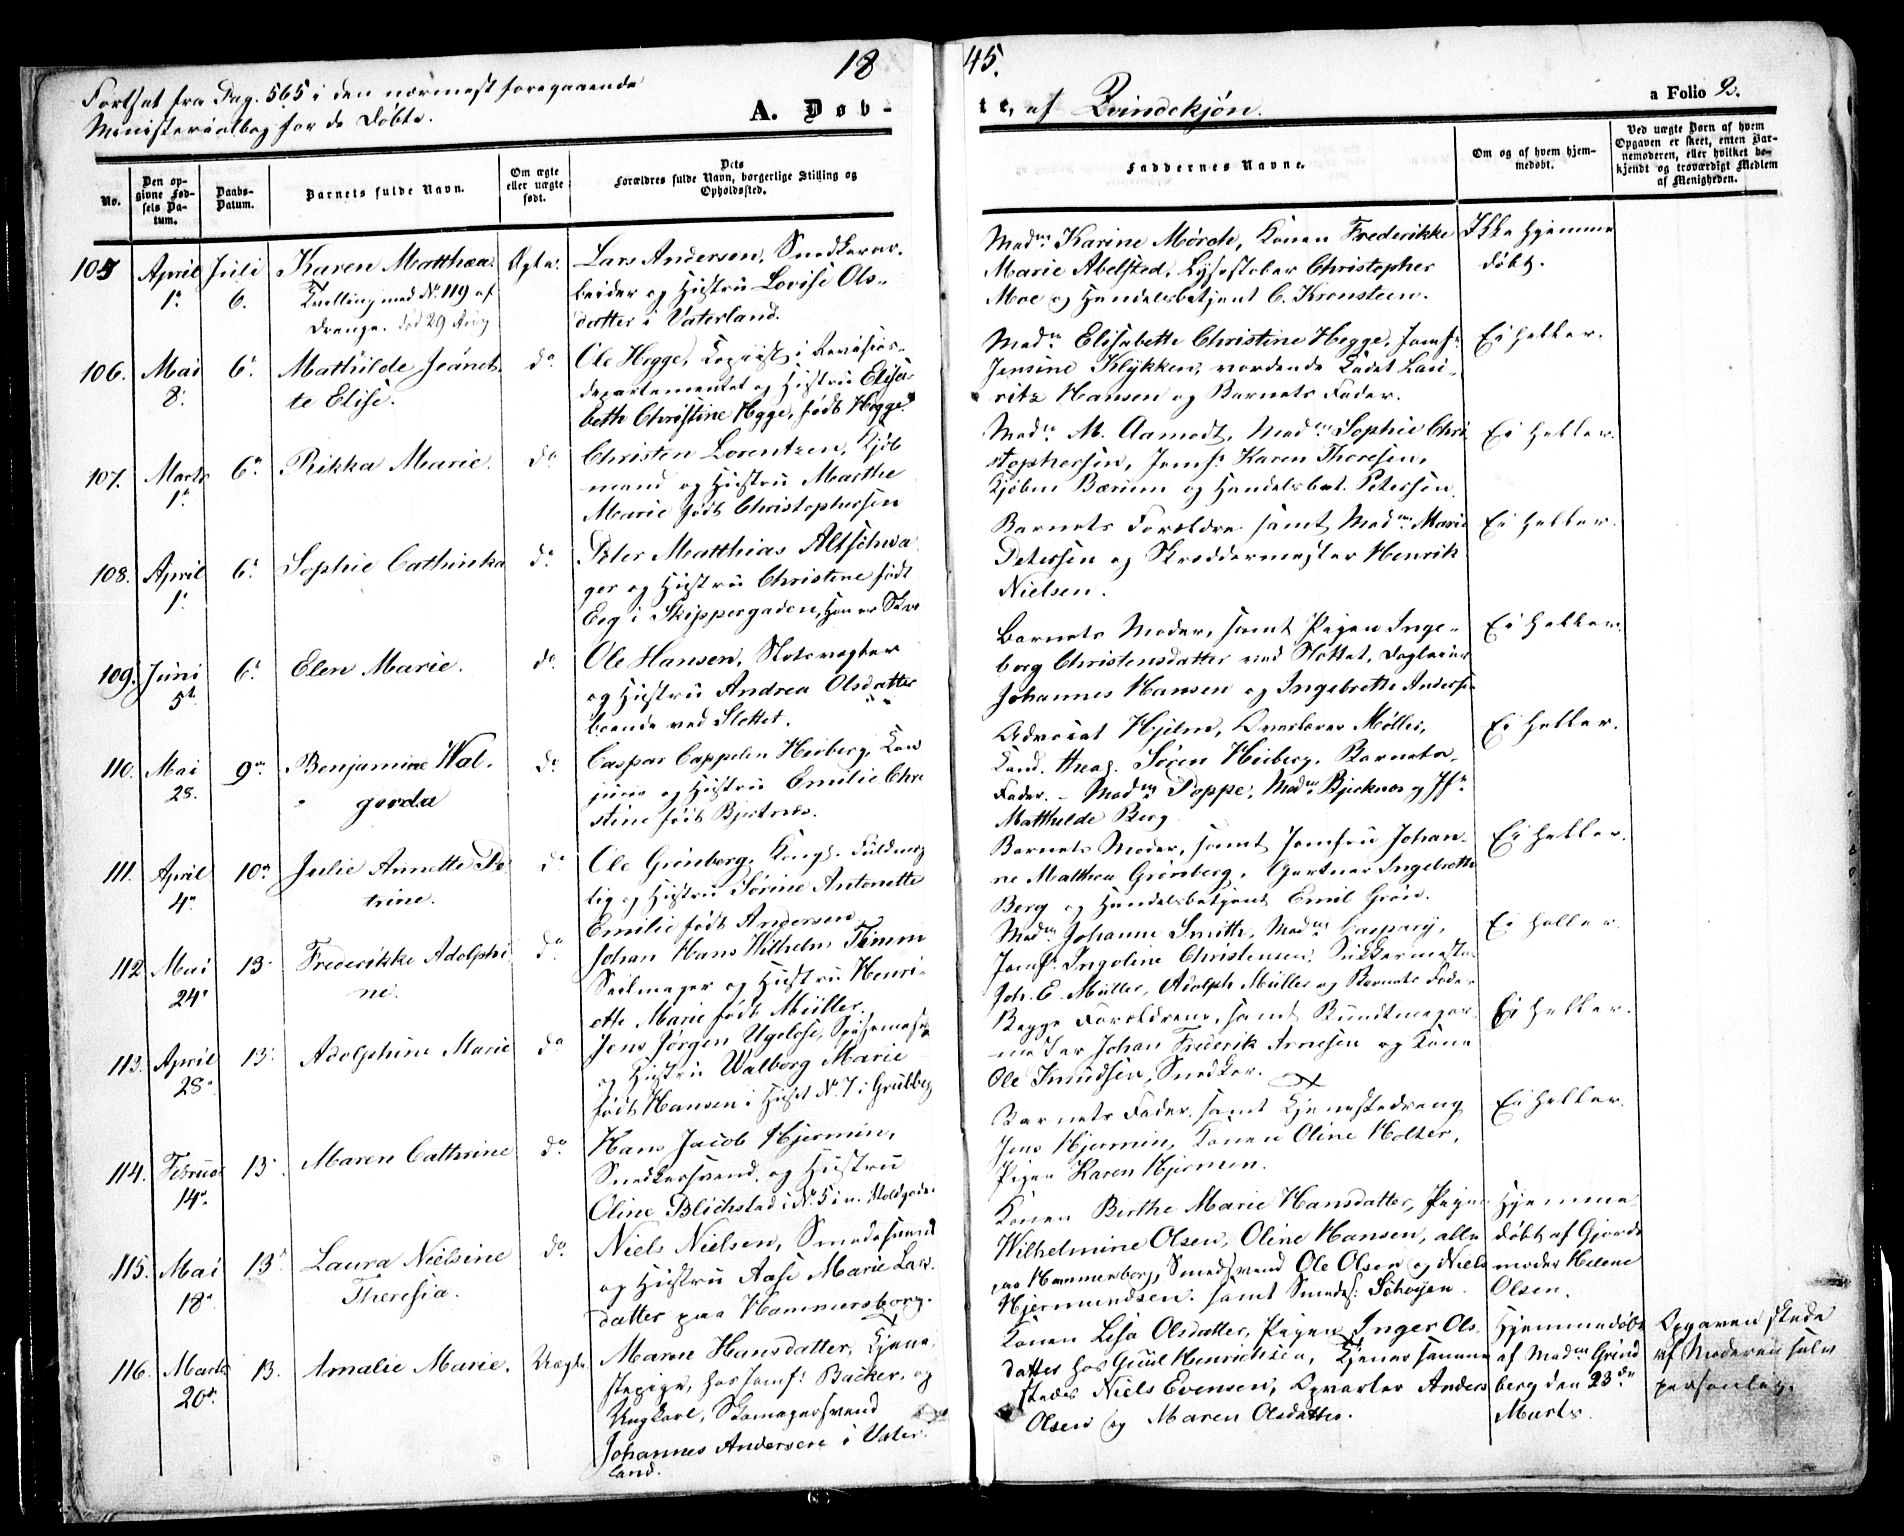 18
45.
Fortsat fra Pag. 565 i den nærmest foregaaende
Ministerialbog for de Døbte.
A. Døb-
te, af Qvindekjøn.
a Folio 2.
No.
Den op-
givne Fød-
sels Da-
tum.
Daabs-
Datum.
Barnets fulde Navn.
Om ægte
eller uægte
født.
Dets
Forældres fulde Navn, borgerlige Stilling og
Opholdssted.
Faddernes Navne.
Om og af hvem hjem-
medøbt.
Ved uægte Børn af hvem
Opgaven er skeet, enten Bar-
nemoderen, eller hvilket be-
kjendt og troværdigt Medlem
af Menigheden.
105 April 1. Juli 6. Karen Matthea.
Tvilling med No. 119 af
Drenge. død 29 Aug
Ægte.
Lars Andersen, Snedkerar-
beider og Hustru Lovise Ols-
datter i Vaterland.
Madm. Karine Mørch, Konen Frederikke
Marie Abelsted, Lysestøber Christopher
Moe og Handelsbetjent C. Kronsteen.
Ikke hjemme
døbt.
106. Mai 8. 6. Mathilde Jeanet-
te Elise.
do
Ole Hegge, Kopiist i Revisions-
departementet og Hustru Elisa-
beth Christine Hegge, født Hegge.
Madm. Elisabeth Christine Hegge, Jomf.
Jensine Klykken, vordende Kadet Lau-
ritz Hansen og Barnets Fader.
Ei heller.
107. Marts 1. 6. Rikka Marie.
do
Christen Lorentzen, Kjøb
mand og Hustru Marthe
Marie født Christophersen
Madm. M. Aamodt, Madm. Sophie Chri
stophersen, Jomf. Karen Thoresen,
Kjøbm Bærum og Handelsbet. Petersen.
Ei heller.
108. April 1. 6. Sophie Cathinka
do
Peter Matthias Altschwa
ger og Hustru Christine født
Eeg i Skippergaden, Han er
Barnets Forældre samt Madm. Marie
Petersen og Skræddermester Henrik
Nielsen.
Ei heller.
109. Juni 5t. 6. Elen Marie.
do
Ole Hansen, Slotsvægter
og Hustru Andrea Olsdatter
boende ved Slottet.
Barnets Moder, samt Pigen Inge-
borg Christensdatter ved Slottet, Dagleier
Johannes Hansen og Ingebrette Anderse
Ei heller.
110. Mai 28. 9. Benjamine Wal-
gerda
do
Caspar Cappelen Heiberg, Kan
og Hustru Emilie Chri
stine født Bjerknæs.
Advocat Hjelm, Overlærer Møller,
Kand. theol. Søren Heiberg, Barnets
Fader. - Madm. Poppe, Madm. Bjerknæs og Jfr.
Matthilde Berg
Ei heller.
111. April 4. 10. Julie Annette Pe
trine.
do
Ole Grønberg, Kongs. Fuldmæg
tig og Hustru Sørine Antonette
Emilie født Andersen.
Barnets Moder, samt Jomfru Johan-
ne Mathea Grønberg, Gartner Ingebrette
Berg og Handelsbetjent Emil Grøn.
Ei heller.
112 Mai 24. 13. Frederikke Adolphi
ne.
do
Johan Hans Wilhelm Timm
Seilmager og Hustru Henri-
ette Marie født Müller.
Madm. Johanne Smith, Madm. Caspary,
Jomf. Ingoline Christensen,
Joh. E. Müller, Adolph Müller og Barnets Fader
Ei heller.
113. April 28. 13. Adolphine Marie
do
Jens Jørgen Ugelose,
og Hustru Walborg Marie
født Hansen i Huset No. 7 i Grubbeg
Begge Forældrene, samt Bundtmager-
mester Johan Frederik Arnesen og Kone
Ole Knudsen, Snedker.
Ei heller.
114. Februar 14. 13. Maren Cathrine
do
Hans Jacob Hjermin,
Snedkersvend og Hustru
Oline Blichstad i No. 5 i n. Voldgade.
Barnets Fader, samt Tjenestedreng
Jens Hjermin, Konen Oline Holter,
Pigen Karen Hjermin.
Ei heller.
115. Mai 18. 13. Laura Nielsine
Theresia.
do
Niels Nielsen, Smedesvend
og Hustru Aase Marie Lars-
datter paa Hammersborg.
Konen Berthe Marie Hansdatter, Pigen
Wilhelmine Olsen, Oline Hansen, alle
paa Hammersborg, Smedsvend Ole Olsen og Niels
Hjermundsen. samt Smedes. Schøyen.
Hjemme
døbt af Gjorde
moder Helene
Olsen.
116. Marts 20de 13. Amalie Marie.
Uægte
Maren Hansdatter, Tjene-
stepige, hos Jomf. Backer, og
Ungkarl, Skomagersvend
Johannes Andersen i Vater-
land.
Konen Lisa Olsdatter, Pigen Inger Ols-
datter hos Henrichsen, Tjener samme-
steds Niels Evensen, Opvarter Anders
Olsen og Maren Olsdatter.
Hjemmedøbt
af Madm. Gründ
berg den 23de
Marts.
Opgaven skede
af Moderen selv
personlig.